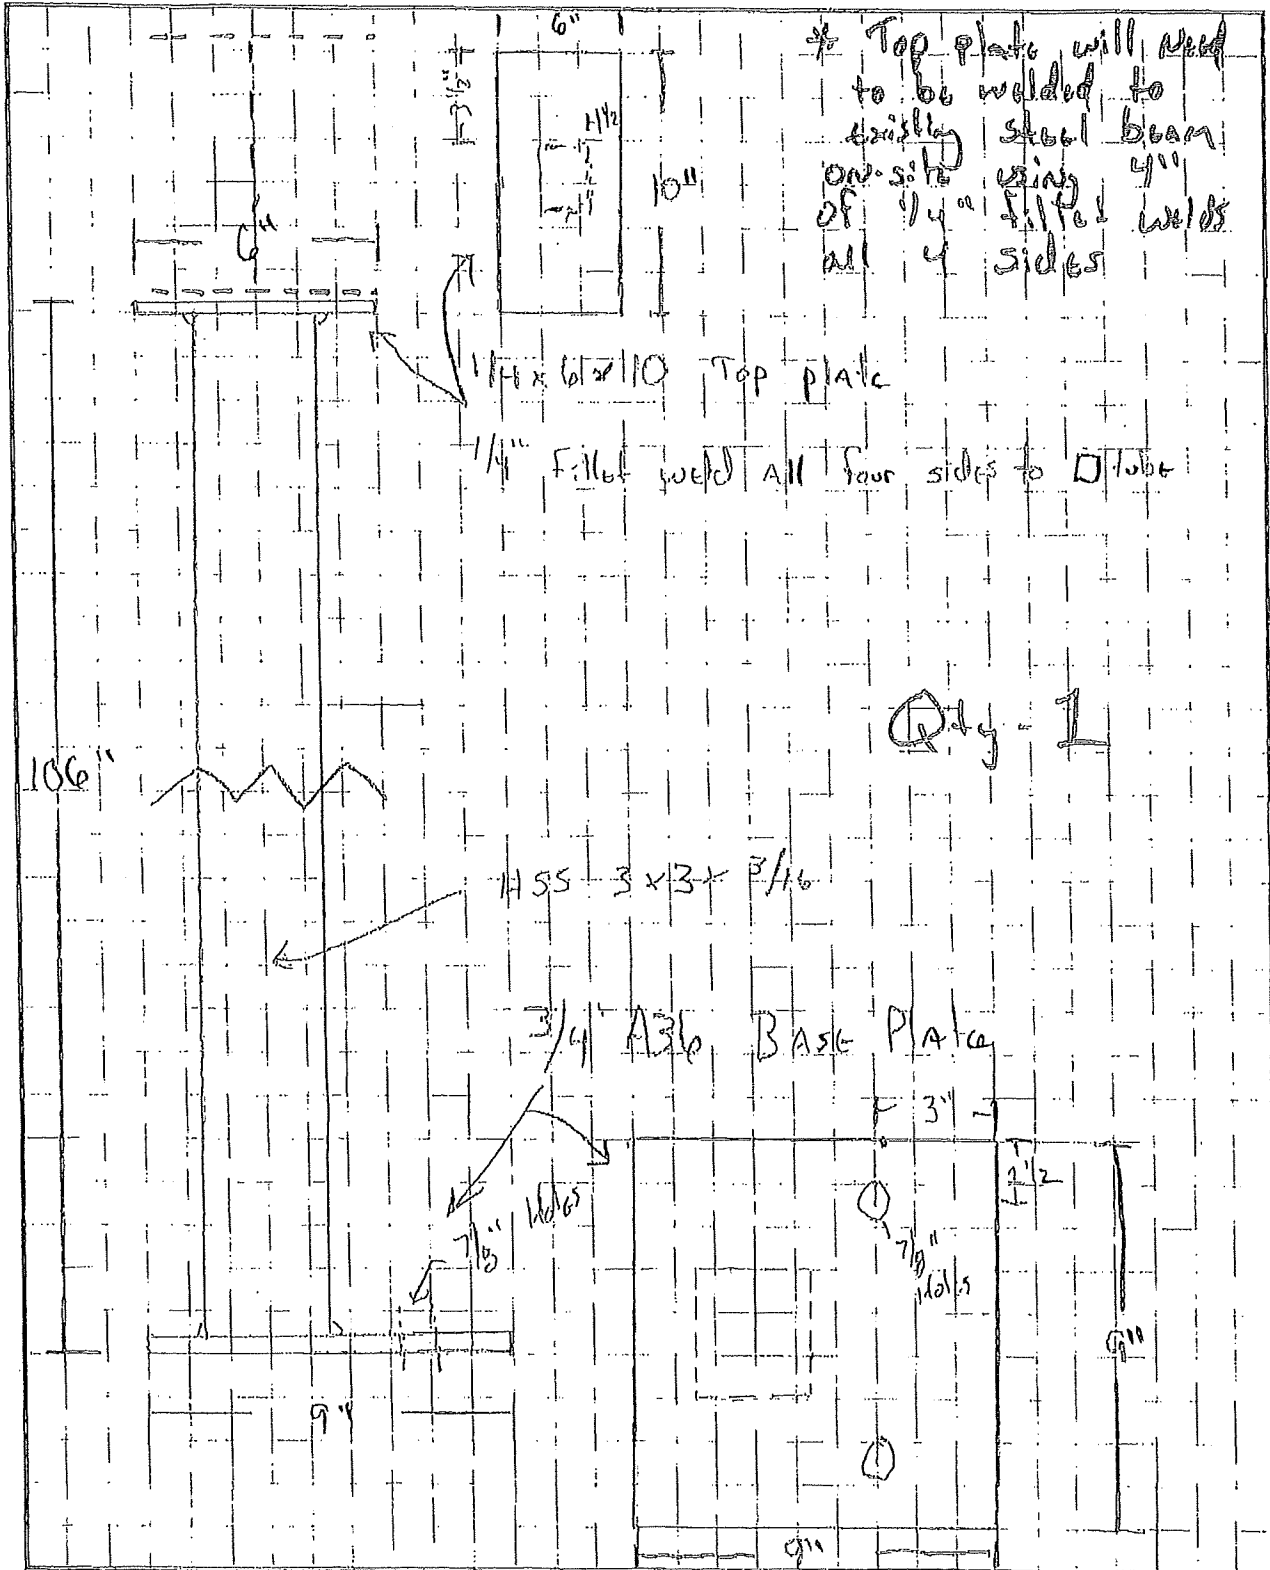 6"
3 1/2"
1 1/2
10"
* Top plate will need
to be welded to
existing steel beam
on-site using 4"
of 1/4" fillet welds
all 4 sides
6"
1/4 x 6 x 10 Top plate
1/4" Fillet weld All four sides to □ tube
Qty - 1
106"
HSS 3 x 3 x 3/16
3/4" A36 Base Plate
3"
1/2
7/8" Holes
7/8"
Holes
9"
9"
9"